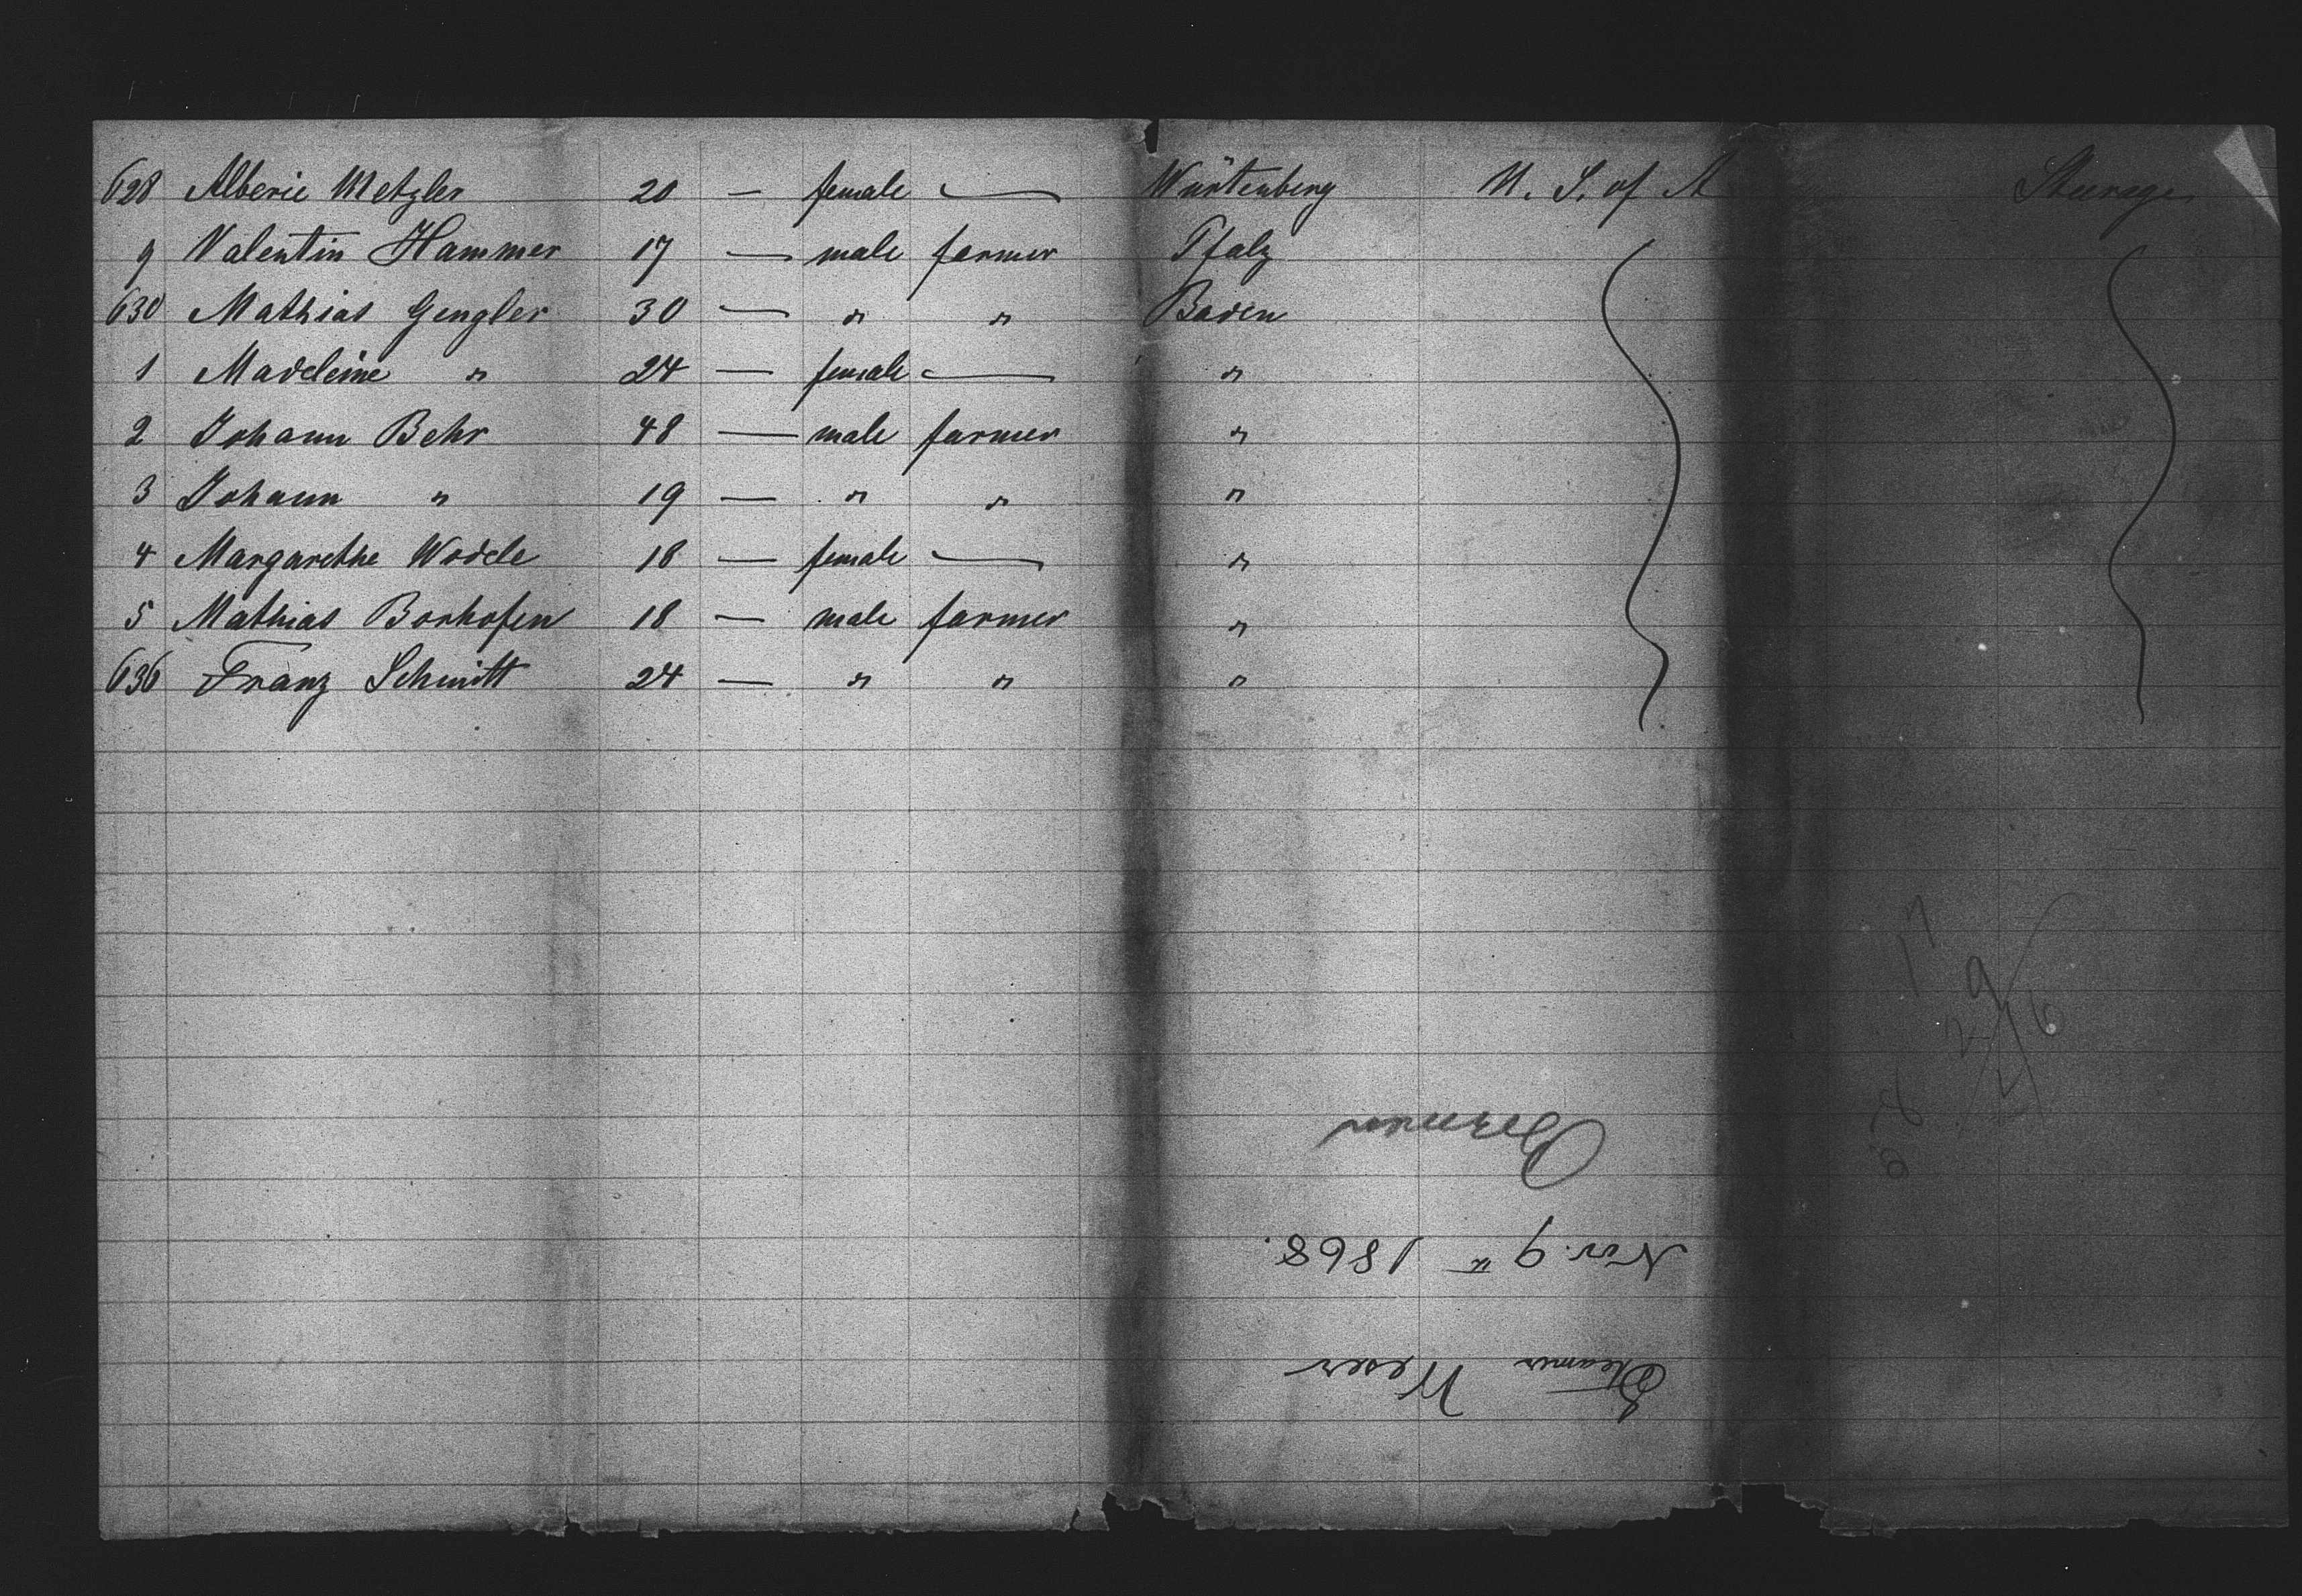 628 Alberie Metzler 20 — female — Würtenberg U. S. of A Steerage
9 Valentin Hammer 17 — male farmer Pfalz
630 Mathias Gengler 30 — " " Baden
1 Madeleine " 24 — female — "
2 Johann Behr 48 — male farmer "
3 Johann " 19 — " " "
4 Margarethe Wodele 18 — female — "
5 Mathias Borhofen 18 — male farmer "
636 Franz Schmitt 24 — " " "
17
29
6
Bremen
Nov. 9" 1868.
Steamer Weser